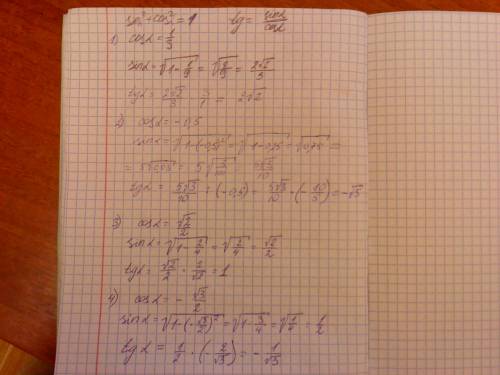 sin²+cos²=1 tg = sinα/cosα
1) cosα = 1/3
sinα = √(1-1/9) = √(8/9) = 2√2/3
tgα = 2√2/3 · 3/1 = 2√2
2) cosα = -0,5
sinα = √(1-(-0,5)²) = √(1-0,25) = √0,75 =
= 5√0,03 = 5√3/10
tgα = 5√3/10 : (-0,5) = 5√3/10 · (-10/5) = -√3
3) cosα = √2/2
sinα = √(1-2/4) = √(2/4) = √2/2
tgα = √2/2 · 2/√2 = 1
4) cosα = -√3/2
sinα = √(1-(-√3/2)²) = √(1-3/4) = √(1/4) = 1/2
tgα = 1/2 · (-2/√3) = -1/√3